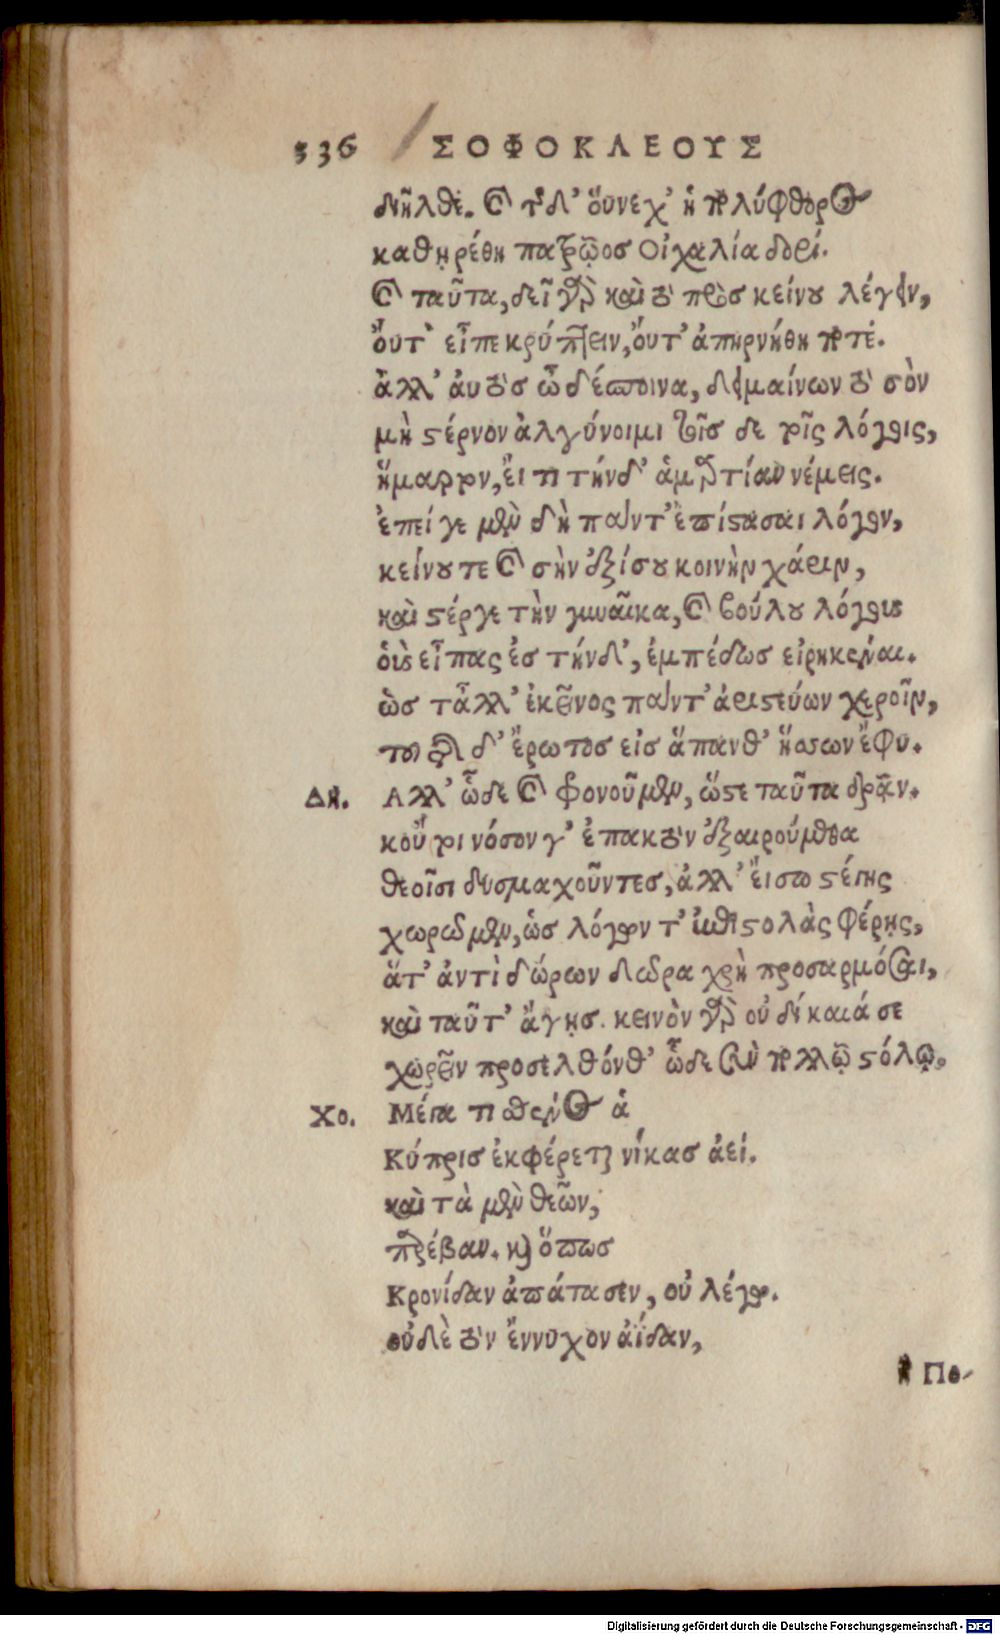 336 ΣΟΦΟΚΛΕΟΥΣ
διῆλθε. καὶ τῆσδ' ὅυνεχ' ἡ πολύφθορος
καθῃρέθη πατρῷοσ Οἰχαλία δορί.
καὶ ταῦτα, δεῖ γὰρ καὶ τὸ πρὸσ κείνου λέγειν,
ὄυτ' εἶπε κρύπτειν, ὄυτ' ἀπηρνήθη ποτέ.
ἀλλ' ἀυτὸσ ὦ δέσποινα, δειμαίνων τὸ σὸν
μὴ στέρνον ἀλγύνοιμι τοῖσ δε τοῖς λόγοις,
ἥμαρτον, ἔι τι τήνδ' ἁμαρτίαν νέμεις.
ἐπεί γε μὲν δὴ πάντ' ἐπίστασαι λόγον,
κείνου τε καὶ σὴν ἐξίσου κοινὴν χάριν,
καὶ στέργε τὴν γυναῖκα, καὶ βούλου λόγους
οὓς εἶπας ἐσ τήνδ', ἐμπέδωσ εἰρηκέναι.
ὡσ τἆλλ' ἐκεῖνος πάντ' ἀριστεύων χεροῖν,
τοῦ τῆσδ' ἔρωτοσ εἰσ ἅπανθ' ἥσσων ἔφυ.
Δη. Αλλ' ὧδε καὶ φρονοῦμεν, ὥστε ταῦτα δρᾷν.
κοὔτοι νόσον γ' ἐπακτὸν ἐξαιρούμεθα
θεοῖσι δυσμαχοῦντεσ, ἀλλ' ἔισω στέγης
χωρῶμεν, ὡσ λόγων τ' ἐπιστολὰς φέρῃς,
ἅτ' ἀντὶ δώρων δῶρα χρὴ προσαρμόσαι,
καὶ ταῦτ' ἄγῃσ. κεινὸν γὰρ οὐ δίκαιά σε
χωρεῖν προσελθόνθ' ὧδε σὺν πολλῷ στόλῳ,
Χο. Μέγα τι σθένος ἁ
Κύπρισ ἐκφέρεται νίκασ ἀεί.
καὶ τὰ μὲν θεῶν,
παρέβαν. καὶ ὅπωσ
Κρονίδαν ἀπάτασεν, οὐ λέγω.
οὐδὲ τὸν ἔννυχον ἀΐδαν,
ἢ Πο-
Digitalisierung gefördert durch die Deutsche Forschungsgemeinschaft - DFG